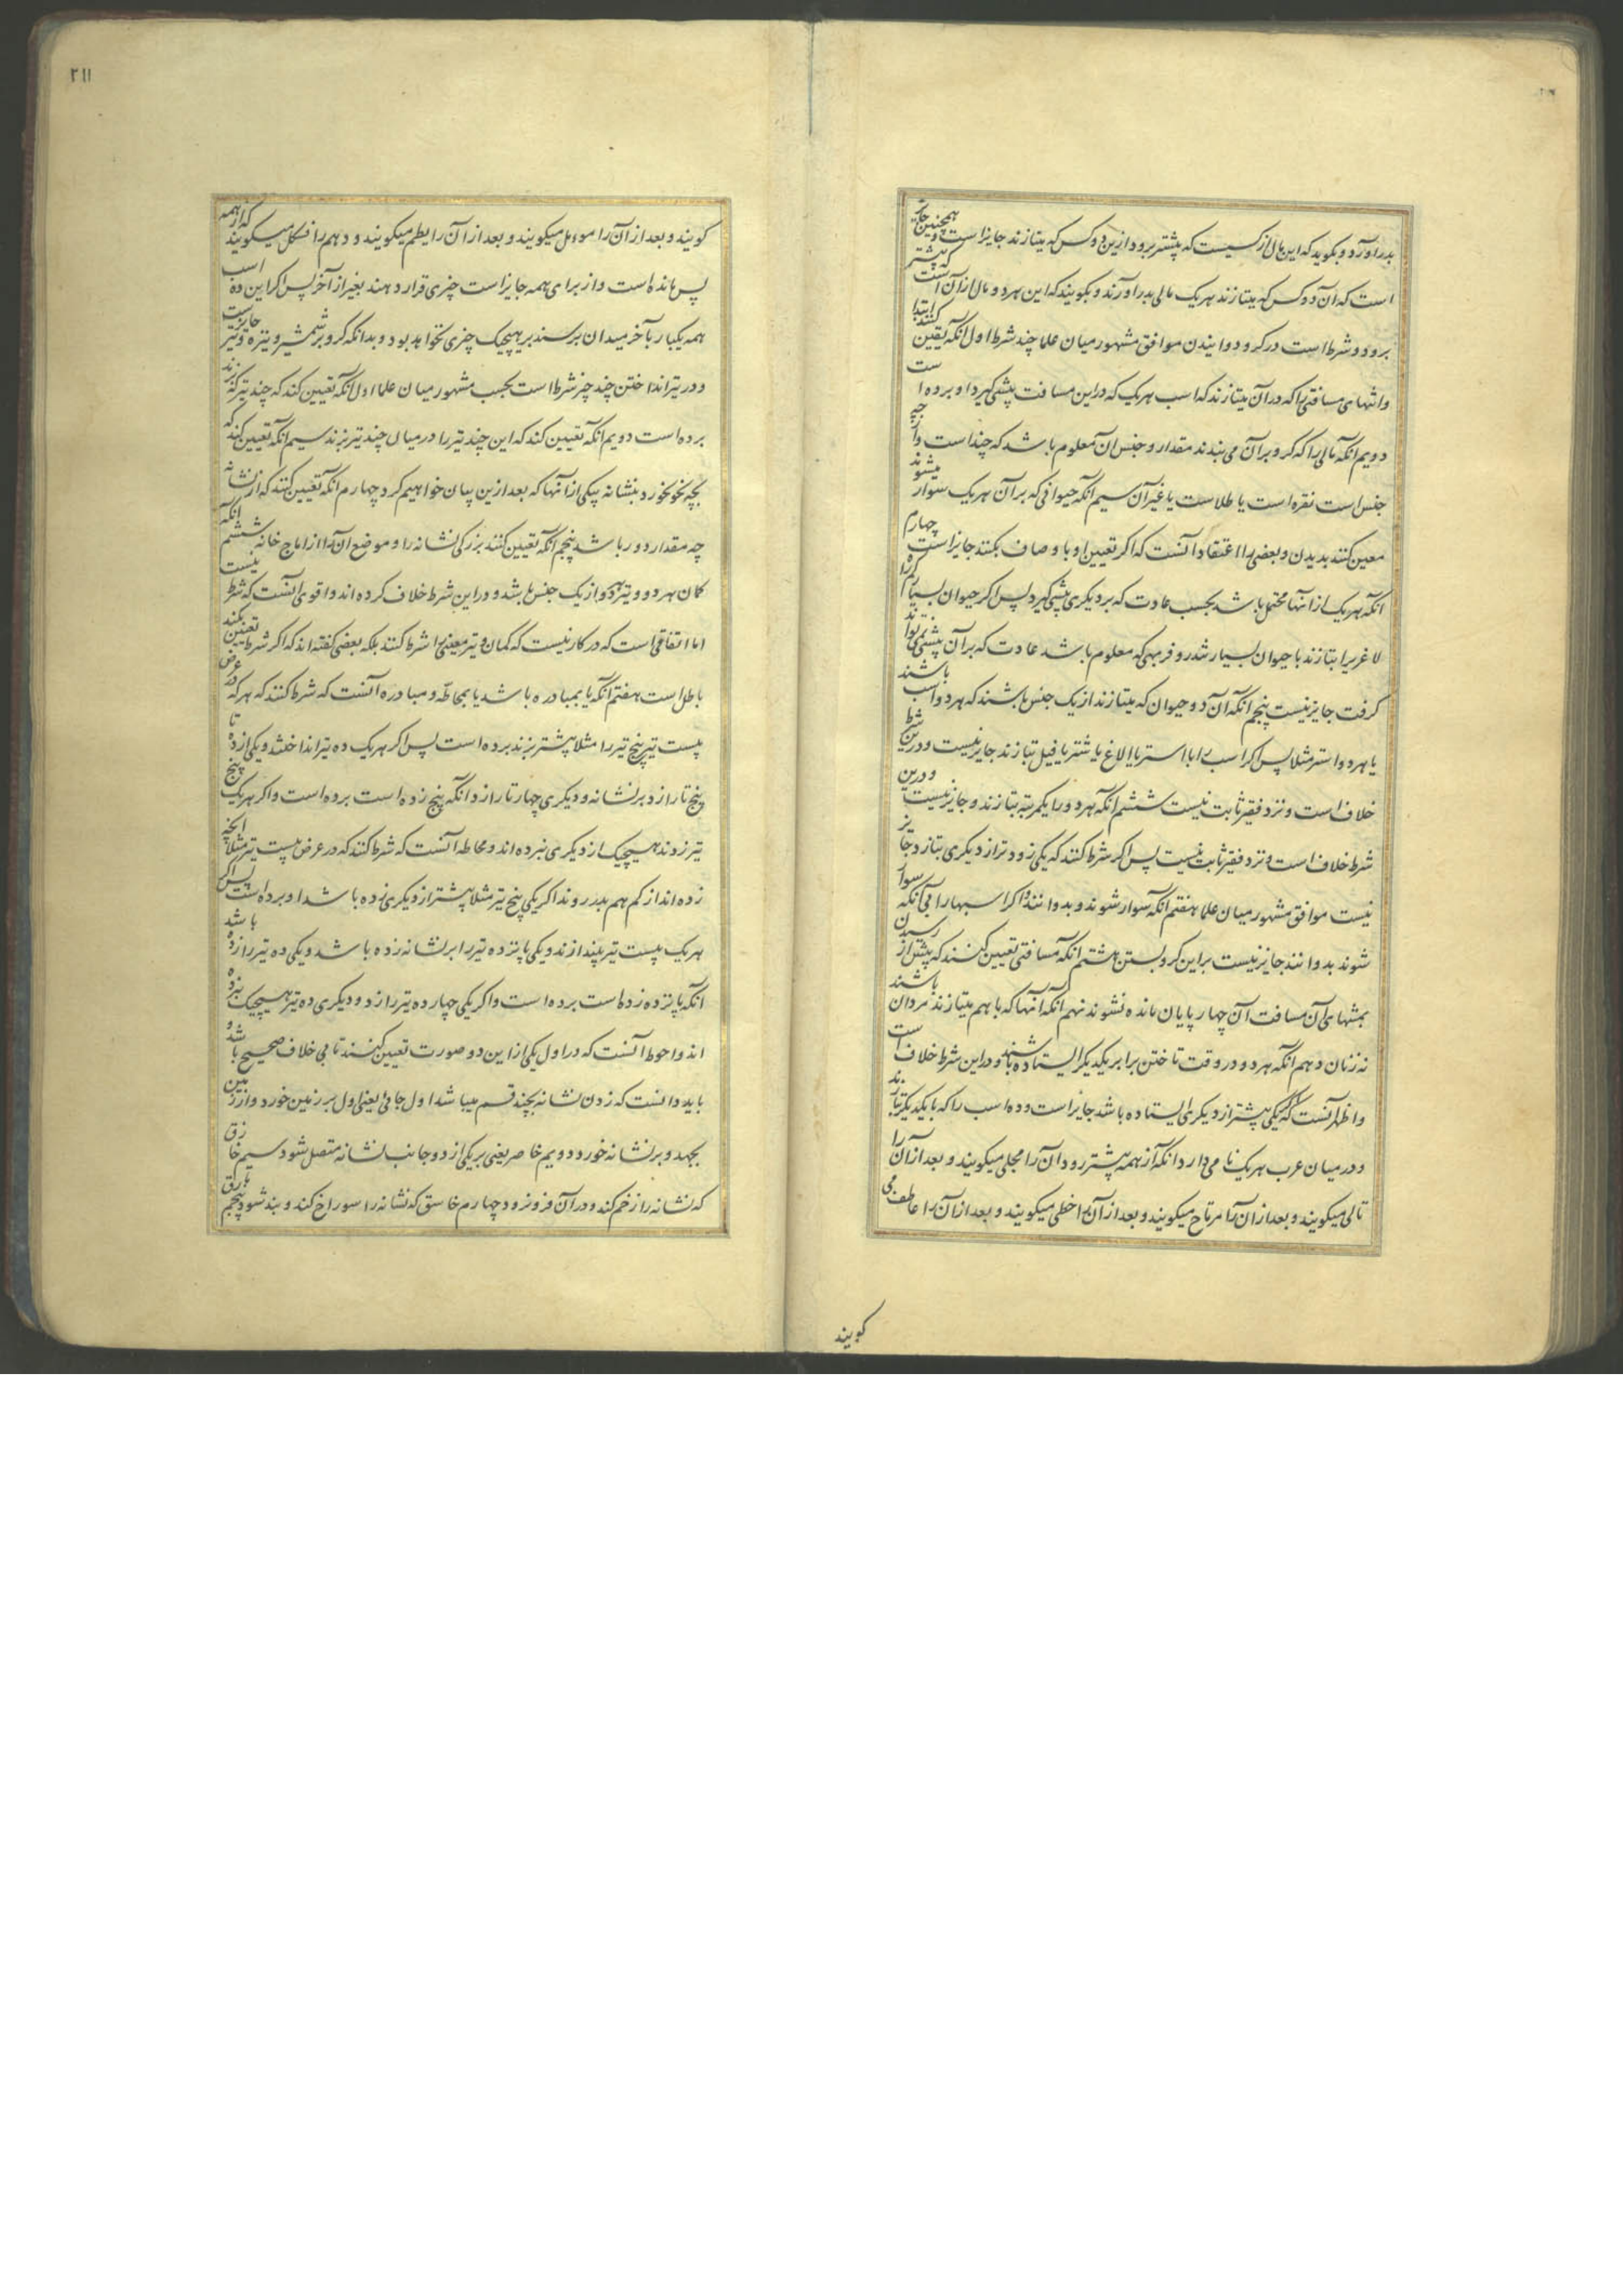 بدر اورد و بکوید که این مال از کسیست که پیشتر برود ازین دو کس که میتازند جایز است و همچنین جایز
است که آن دو کس که میتازند هر یک مالی بدر اورند و بکویند که این هر دو مال از آن است که پیشتر
برود و شرط است در کرو دوانیدن موافق مشهور میان علما چند شرط اول انکه تعیین کنند ابتدا
و انتهای مسافتی را که در آن میتازند که اسب هر یک که در این مسافت پیشی گیرد او برده است
دویم انکه مالی را که کرو بر آن می بندند مقدار و جنس ان معلوم باشد که چند است و از چه
جنس است نقره است یا طلاست یا غیر آن سیم انکه حیوانی که بر آن هر یک سوار میشوند
معین کنند بدیدن و بعضی را اعتقاد آنست که اکر تعیین او باوصاف بکنند جایز است چهارم
انکه هر یک از انها محتمل باشد بحسب عادت که بر دیکری پیشی گیرد پس اکر حیوان بسیار
لاغریرا بتازند با حیوان بسیار تندرو فربهی که معلوم باشد عادت که بر آن پیشی نمی تواند
کرفت جایز نیست پنجم انکه آن دو حیوان که میتازند از یک جنس باشند که هر دو اسب باشند
یا هر دو استر مثلا پس اکر اسب را با استر یا الاغ یا شتر یا فیل بتازند جایز نیست و درین شرط
خلاف است و نزد فقیر ثابت نیست ششم انکه هر دو را یکمرتبه بتازند و جایز نیست و درین
شرط خلاف است و نزد فقیر ثابت نیست پس اکر شرط کنند که یکی زودتر از دیکری بتازد جایز
نیست موافق مشهور میان علما هفتم انکه سوار شوند و بدوانند و اکر اسبها را بی آنکه سوار
شوند بدوانند جایز نیست بر این کرو بستن هشتم انکه مسافتی تعیین کنند که پیش از رسیدن
بمنتهای آن مسافت آن چهارپایان مانده نشوند نهم انکه انها که با هم میتازند مردان باشند
نه زنان دهم انکه هر دو در وقت تاختن برابر یکدیکر ایستاده باشند و در این شرط خلاف است
و اظهر آنست که اکر یکی پیشتر از دیکری ایستاده باشد جایز است و ده اسب را که با یکدیکر بتازند
و در میان عرب هر یک نامی دارد انکه از همه پیشتر رود آن را مجلی میکویند و بعد از آن را
تالی میکویند و بعد از آن را مرتاح میکویند و بعد از آن را حظی میکویند و بعد از آن را عاطف می
کویند
۲۱۱
کویند و بعد از آن را مومل میکویند و بعد از آن را یطم میکویند و دهم را فسکل میکویند که از همه
پس مانده است و از برای همه جایز است چیزی قرار دهند بغیر از آخر پس اکر این ده اسب
همه یکبار بآخر میدان برسند بر هیچیک چیزی نخواهد بود و بدانکه کرو بر شمشیر و نیزه و تیر جایز است
و در تیر انداختن چند چیز شرط است بحسب مشهور میان علما اول انکه تعیین کند که چند تیر که زند
برده است دویم انکه تعیین کند که این چند تیر را در میان چند تیر بزند سیم انکه تعیین کند که
بچه نحو بخورد بنشانه بیکی از انها که بعد ازین بیان خواهیم کرد چهارم انکه تعیین کنند که از نشانه
چه مقدار دور باشد پنجم انکه تعیین کنند بزرکی نشانه را و موضع ان را از اماج خانه ششم انکه
کمان هر دو و تیر هر دو از یک جنس باشد و در این شرط خلاف کرده اند و اقوی انست که شرط نیست
اما اتفاقی است که در کار نیست که کمان و تیر معینی را شرط کنند بلکه بعضی کفته اند که اکر شرط تعیین بکنند
باطل است هفتم انکه یا بمبادره باشد یا بمحاطه و مبادره آنست که شرط کنند که هر که در عرض
بیست تیر پنج تیر را مثلا پیشتر بزند برده است پس اکر هر یک ده تیر انداختند و یکی از ده تا
پنج تا را زد بر نشانه و دیکری چهار تا را زد انکه پنج زده است برده است و اکر هر یک پنج
تیر زدند هیچیک از دیکری نبرده اند و محاطه آنست که شرط کنند که در عرض بیست تیر مثلا انچه
زده اند از کم هم بدر روند اکر یکی پنج تیر مثلا پیشتر از دیکری زده باشد او برده است پس اکر
هر یک بیست تیر بیندازند و یکی پانزده تیر را بر نشانه زده باشد و یکی ده تیر را زده باشد
انکه پانزده زده است برده است و اکر یکی چهارده تیر را زد و دیکری ده تیر هیچیک نبرده
اند و احوط آنست که در اول یکی از این دو صورت تعیین کنند تا بی خلاف صحیح باشد و
باید دانست که زدن نشانه بچند قسم میباشد اول جابی یعنی اول بر زمین خورد و از زمین
بجهد و بر نشانه خورد دویم خاصر یعنی بر یکی از دو جانب نشانه متصل شود سیم خازق
که نشانه را زخم کند و در آن فرو نرود چهارم خاسق که نشانه را سوراخ کند و بند شود پنجم مارق